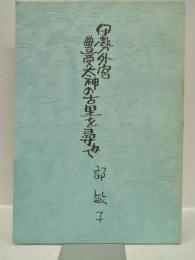 伊勢外宮
豊受大神の古里を尋ねて
郡 敏子